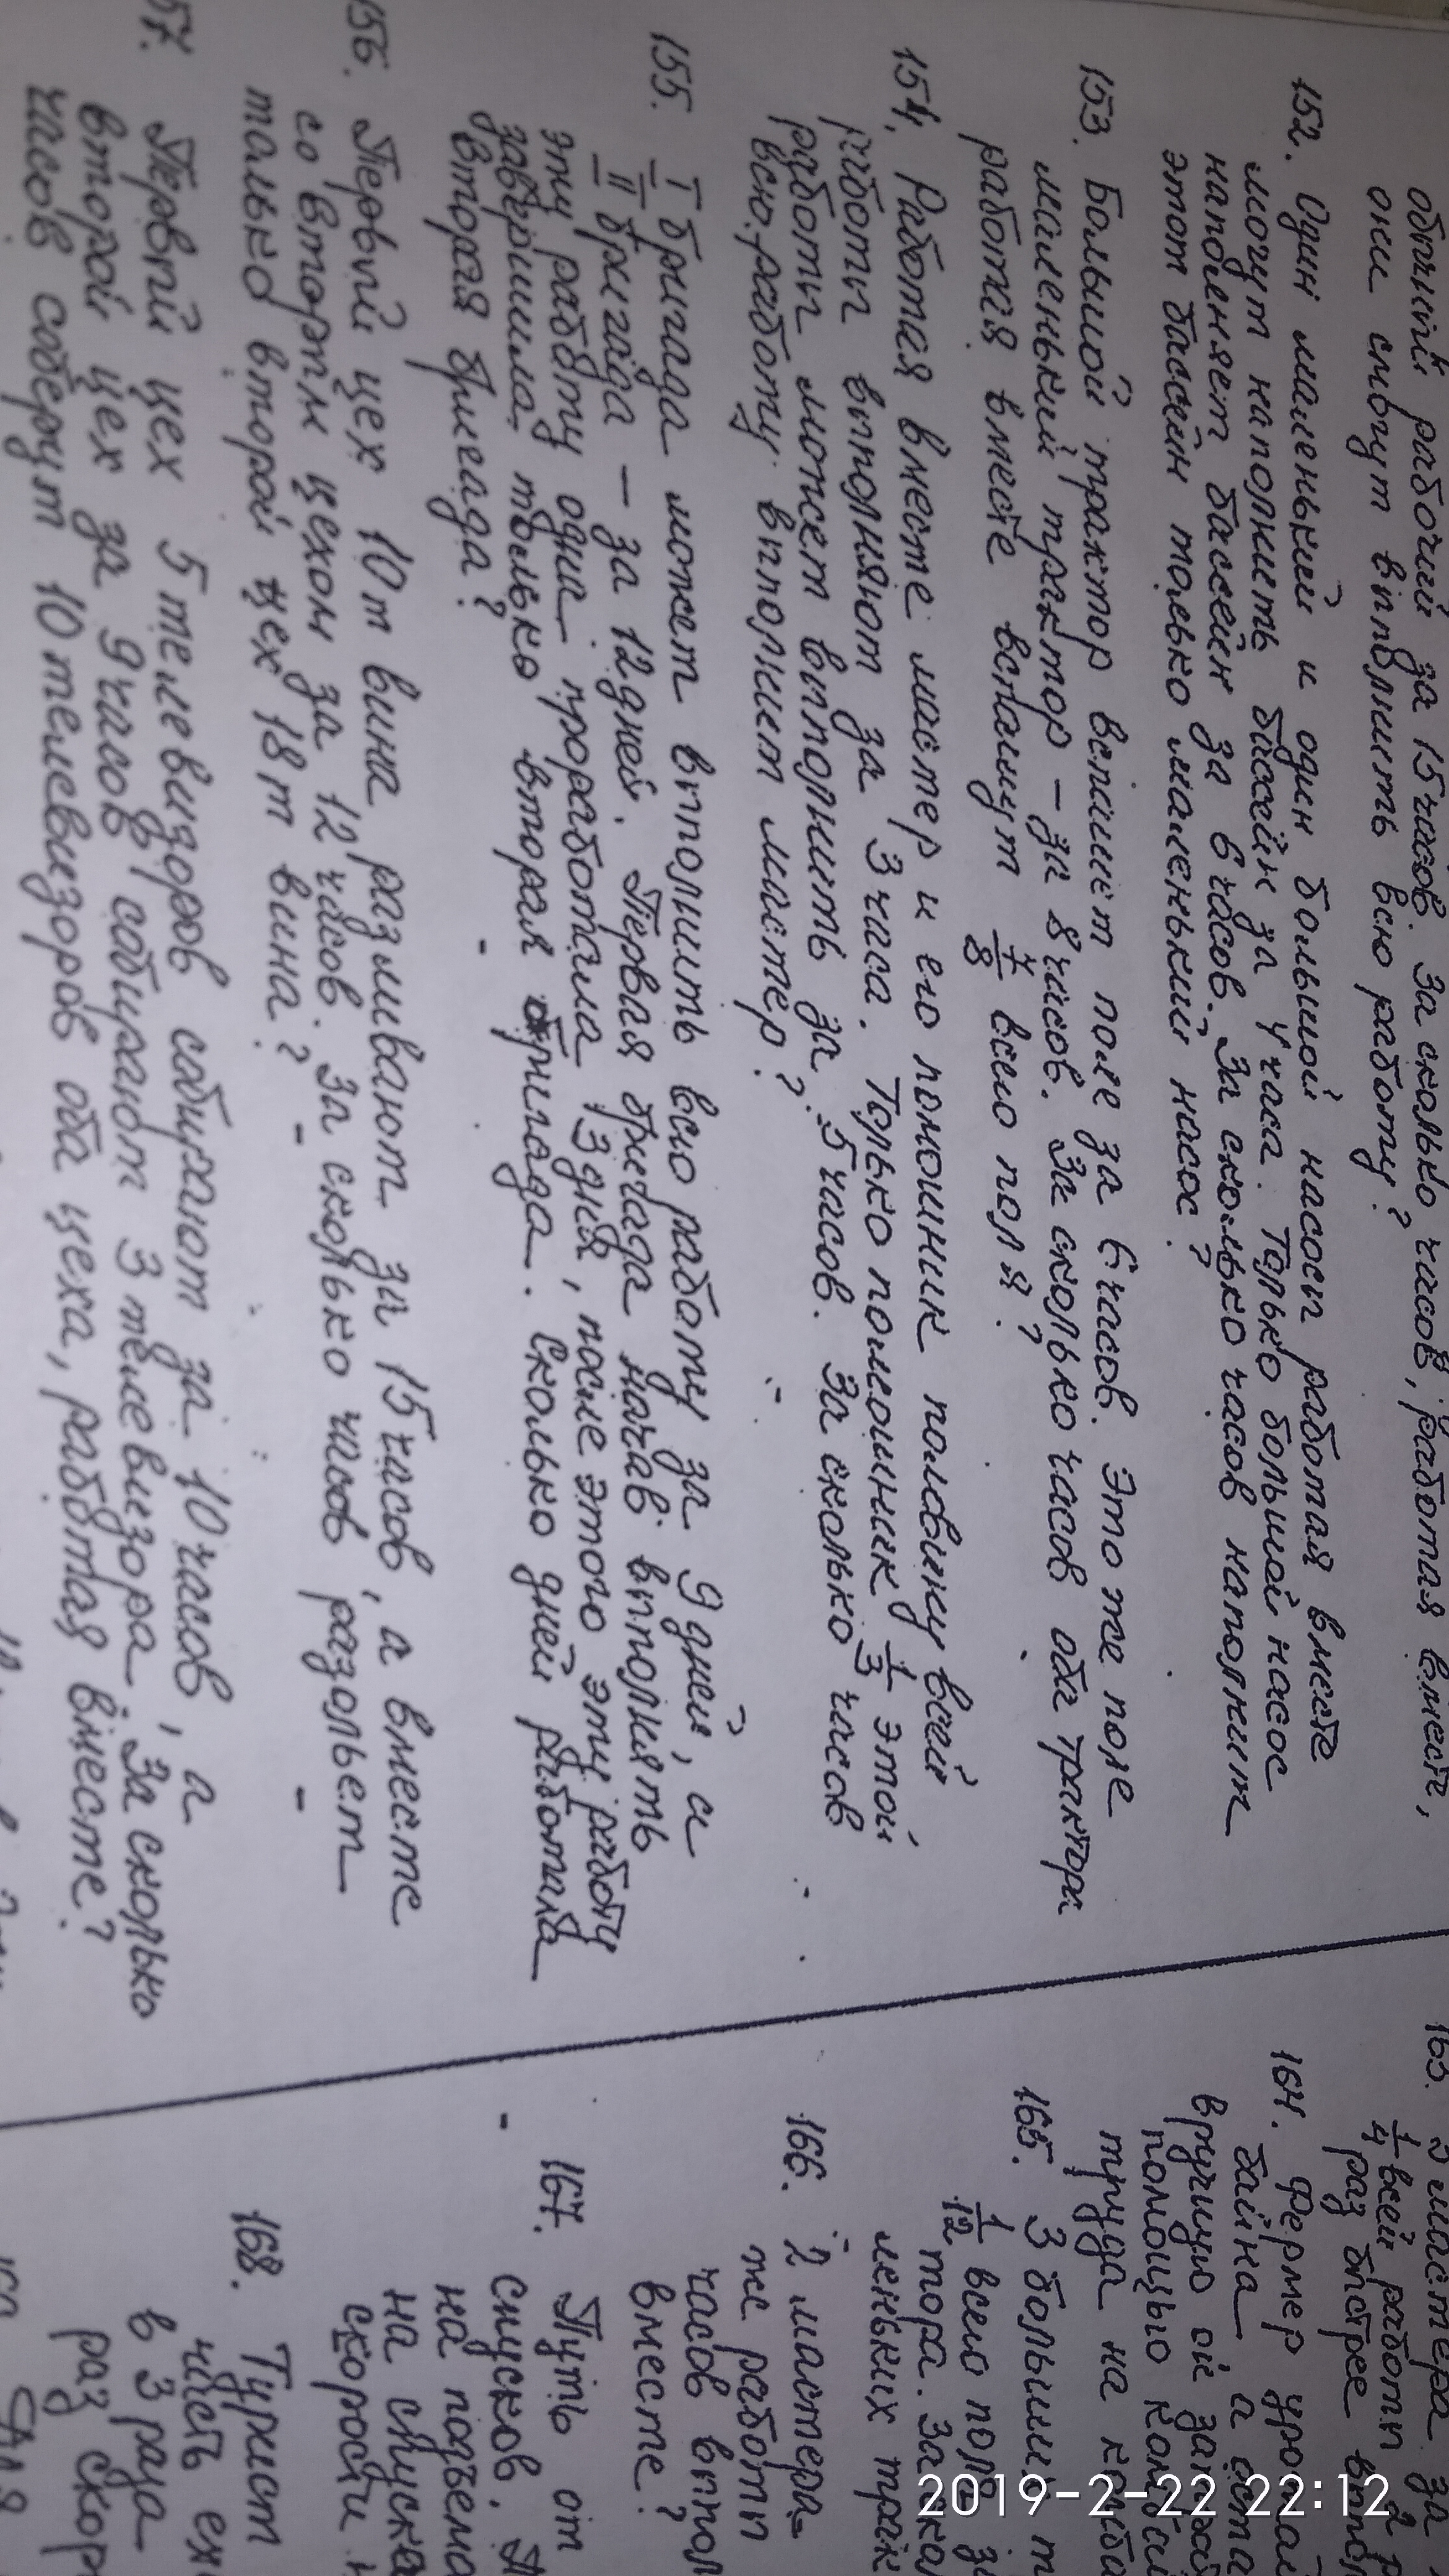 обычный рабочий за 15 часов. За сколько часов, работая вместе,
они смогут выполнить всю работу?
152. Один маленький и один большой насосы работая вместе
могут наполнить бассейн за 4 часа. Только большой насос
наполняет бассейн за 6 часов. За сколько часов наполнит
этот бассейн только маленький насос?
153. Большой трактор вспашет поле за 6 часов. Это же поле
маленький трактор – за 8 часов. За сколько часов оба трактора
работая вместе вспашут 7/8 всего поля?
154. Работая вместе мастер и его помошник половину всей
работы выполняют за 3 часа. Только помошник 1/3 этой
работы может выполнить за 5 часов. За сколько часов
всю работу выполнит мастер?
155. I бригада может выполнить всю работу за 9 дней, а
II бригада – за 12 дней. Первая бригада начав выполнять
эту работу одна проработала 3 дня, после этого эту работу
завершила только вторая бригада. Сколько дней работала
вторая бригада?
156. Первый цех 10 т вина разливают за 15 часов, а вместе
со вторым цехом за 12 часов. За сколько часов разольет
только второй цех 18 т вина?
57. Первый цех 5 телевизоров собирают за 10 часов, а
второй цех за 9 часов собирают 3 телевизора. За сколько
часов соберут 10 телевизоров оба цеха, работая вместе?
163. 2 мастера за
1/4 всей работы
раз быстрее
164. Фермер урожай
байна, а оста
вручную он
помощью комбай
труда на комба
165. 3 больших т
1/12 всего поля
тора. За
леньких трак
166. 2 мастера
же работы
часов выпол
вместе?
167. Путь от
спусков.
на подъема
на спуска
скорости
168. Турист
часть
в 3 раза
раз скор
2019-2-22 22:12